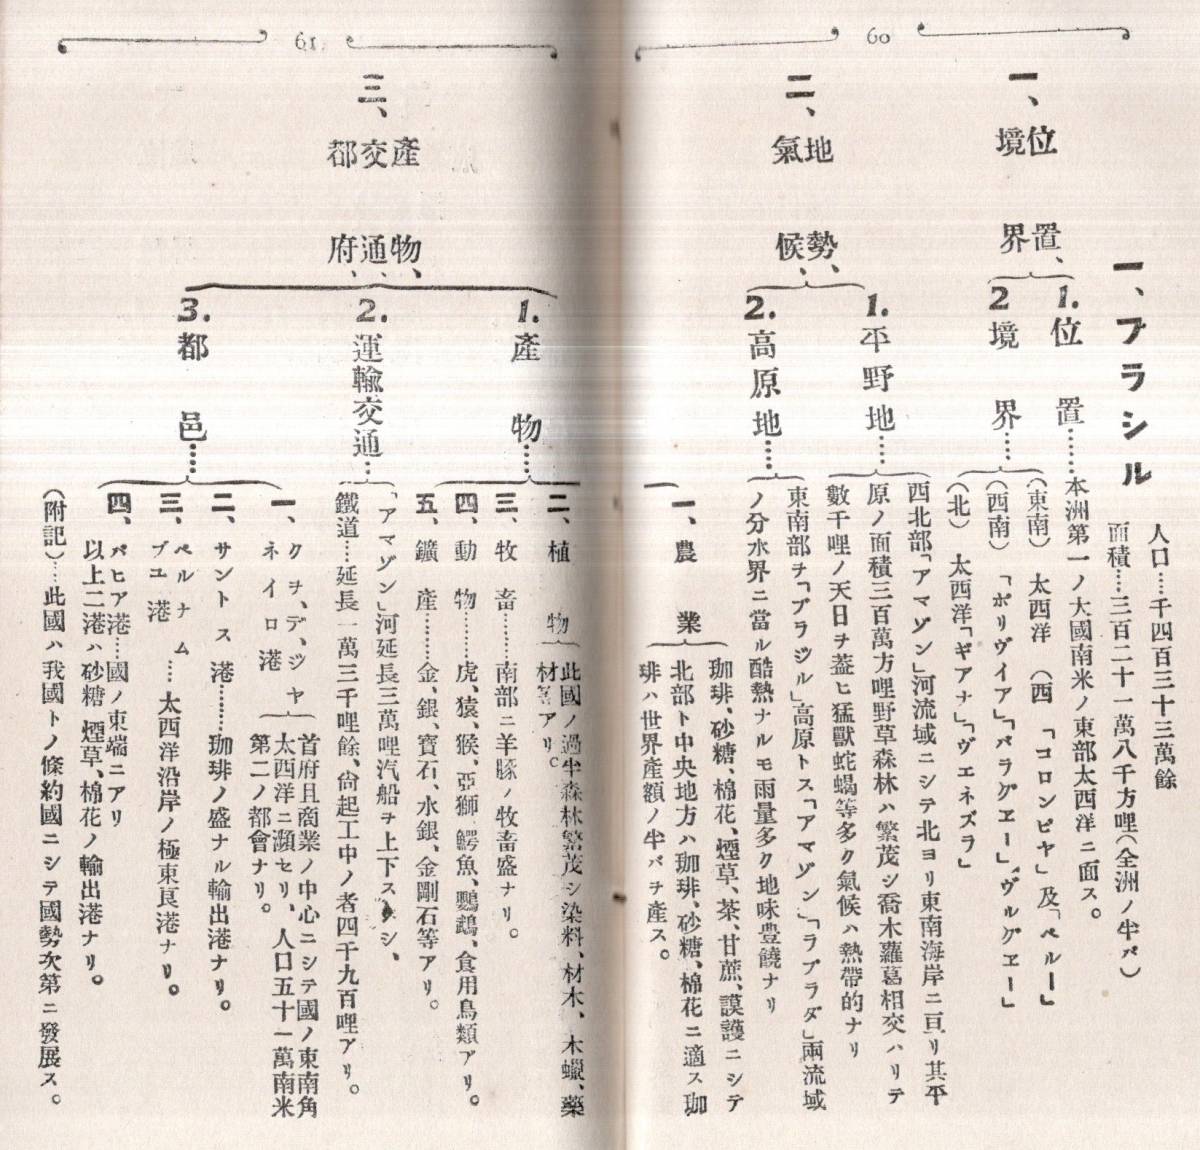 60
一、ブラシル
人口…千四百三十三萬餘
面積…三百二十一萬八千方哩(全洲ノ半バ)
一、
位置、
境界
1. 位置……本洲第一ノ大國南米ノ東部太西洋ニ面ス。
2 境界……
(東南) 太西洋 (西「コロンビヤ」及「ペルー」
(西南)「ボリヴイア」「パラグエー」「ヴルグエー」
(北) 太西洋「ギアナ」「ヴエネズラ」
二、
地勢、
氣候、
1. 平野地……
西北部「アマゾン」河流域ニシテ北ヨリ東南海岸ニ亘リ其平
原ノ面積三百萬方哩野草森林ハ繁茂シ喬木蘿葛相交ハリテ
數千哩ノ天日ヲ蓋ヒ猛獸蛇蝎等多ク氣候ハ熱帶的ナリ
2. 高原地……
東南部ヲ「ブラジル」高原トス「アマゾン」「ラプラダ」兩流域
ノ分水界ニ當ル酷熱ナルモ雨量多ク地味豊饒ナリ
一、農業
珈琲、砂糖、棉花、煙草、茶、甘蔗、護謨ニシテ
北部ト中央地方ハ珈琲、砂糖、棉花ニ適ス珈
琲ハ世界產額ノ半バヲ產ス。
61
三、
產物、
交通、
都府、
1. 產物……
二、植物
此國ノ過半森林繁茂シ染料、材木、木蠟、藥
材等アリ。
三、牧畜………南部ニ羊豚ノ牧畜盛ナリ。
四、動物………虎、猿、猴、亞獅、鰐魚、鸚鵡、食用鳥類アリ。
五、鑛產………金、銀、寶石、水銀、金剛石等アリ。
2. 運輸交通……
「アマゾン」河延長三萬哩汽船ヲ上下スベシ、
鐵道…延長一萬三千哩餘、尙起工中ノ者四千九百哩アリ。
3. 都邑……
一、クヲ、デ、ジヤ
ネイロ港
首府且商業ノ中心ニシテ國ノ東南角
太西洋ニ瀕セリ、人口五十一萬南米
第二ノ都會ナリ。
二、サントス港………珈琲ノ盛ナル輸出港ナリ。
三、ペルナム
ブユ港
……太西洋沿岸ノ極東良港ナリ。
四、バヒア港……國ノ東端ニアリ
以上二港ハ砂糖、煙草、棉花ノ輸出港ナリ。
(附記)…此國ハ我國トノ條約國ニシテ國勢次第ニ發展ス。